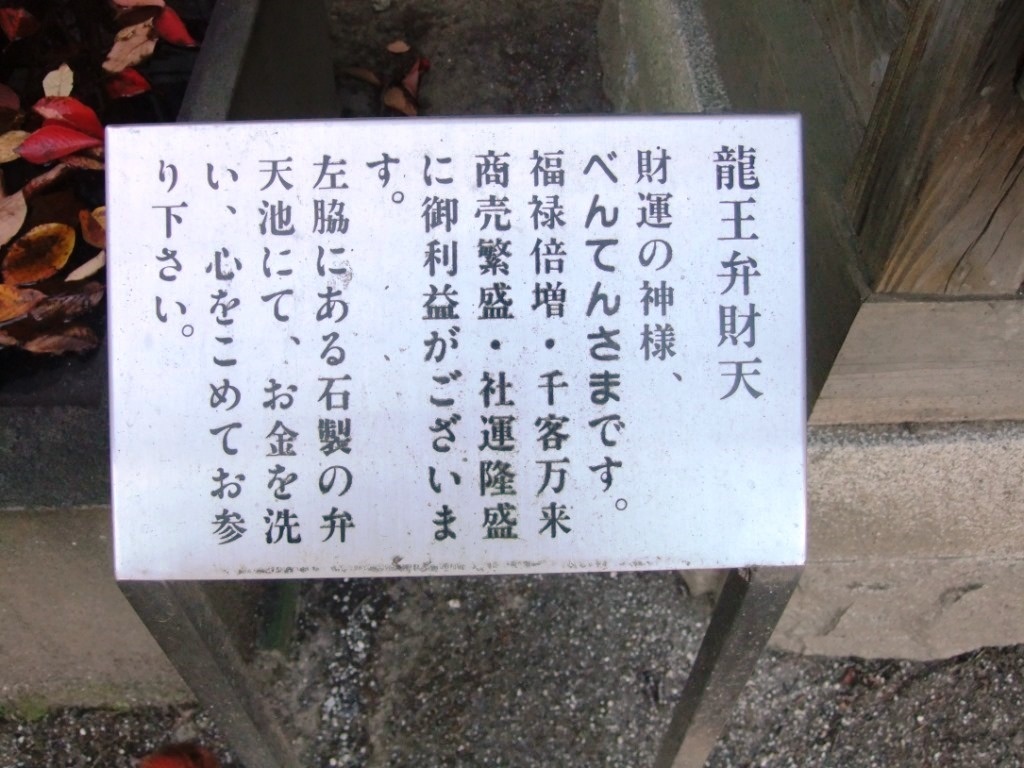 龍王弁財天
財運の神様、
べんてんさまです。
福禄倍増・千客万来
商売繁盛・社運隆盛
に御利益がございま
す。
左脇にある石製の弁
天池にて、お金を洗
い、心をこめてお参
り下さい。